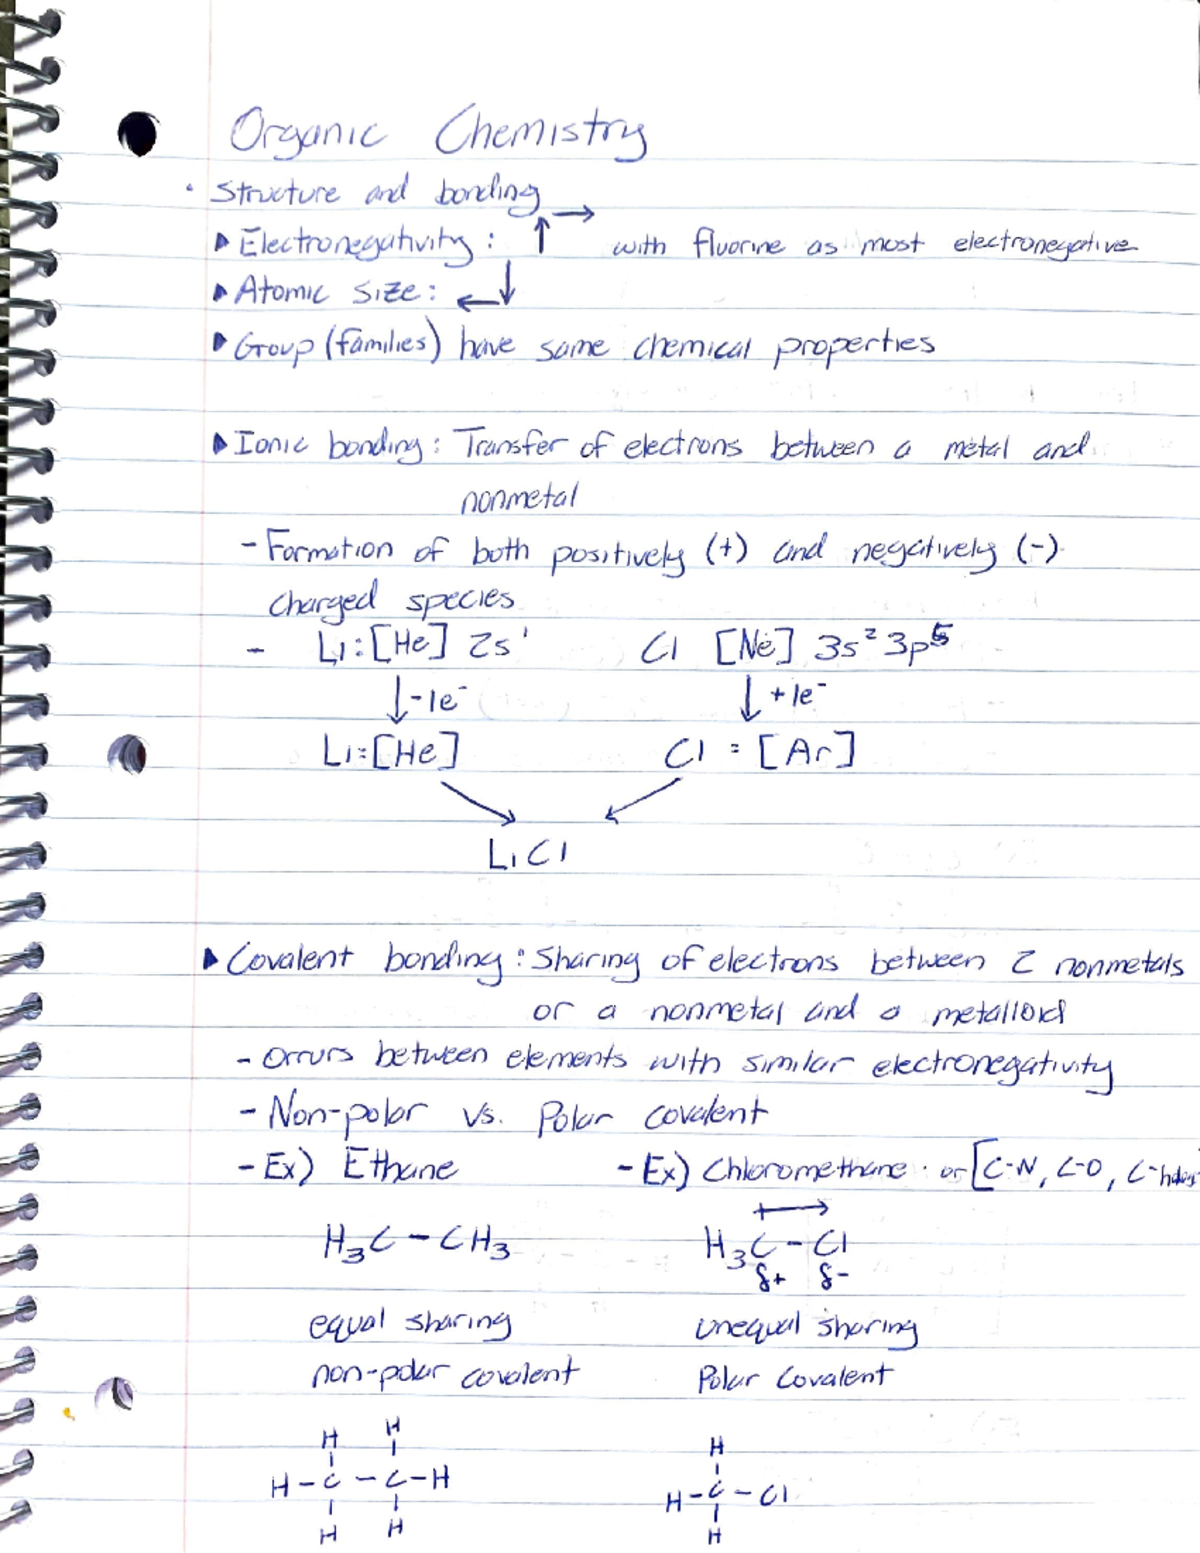 Organic Chemistry
• Structure and bonding
▶ Electronegativity: ↑→ with fluorine as most electronegative
▶ Atomic size: ←↓
▶ Group (families) have same chemical properties
▶ Ionic bonding: Transfer of electrons between a metal and
nonmetal
- Formation of both positively (+) and negatively (-)
charged species
- Li:[He] 2s¹ Cl [Ne] 3s² 3p⁵
↓-1e⁻ ↓+1e⁻
Li:[He] Cl = [Ar]
LiCl
▶ Covalent bonding: Sharing of electrons between 2 nonmetals
or a nonmetal and a metalloid
- Occurs between elements with similar electronegativity
- Non-polar vs. Polar covalent
- Ex) Ethane - Ex) Chloromethane or [C-N, C-O,
H₃C-CH₃ H₃C-Cl
δ+ δ-
equal sharing unequal sharing
non-polar covalent Polar Covalent
H H H
H-C-C-H H-C-Cl
H H H